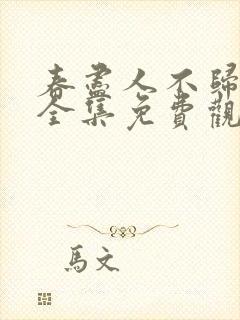 春盡人不歸
全集免費觀
馬文